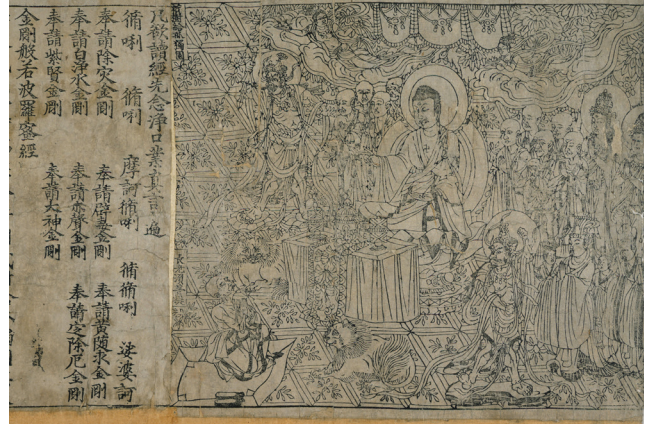 祇樹給孤獨園
凡欲讀經先念淨口業真言一遍
脩唎 脩唎 摩訶脩唎 脩脩唎 娑婆訶
奉請除災金剛 奉請辟毒金剛 奉請黃隨求金剛
奉請白淨水金剛 奉請赤聲金剛 奉請定除厄金剛
奉請紫賢金剛 奉請大神金剛
金剛般若波羅蜜經